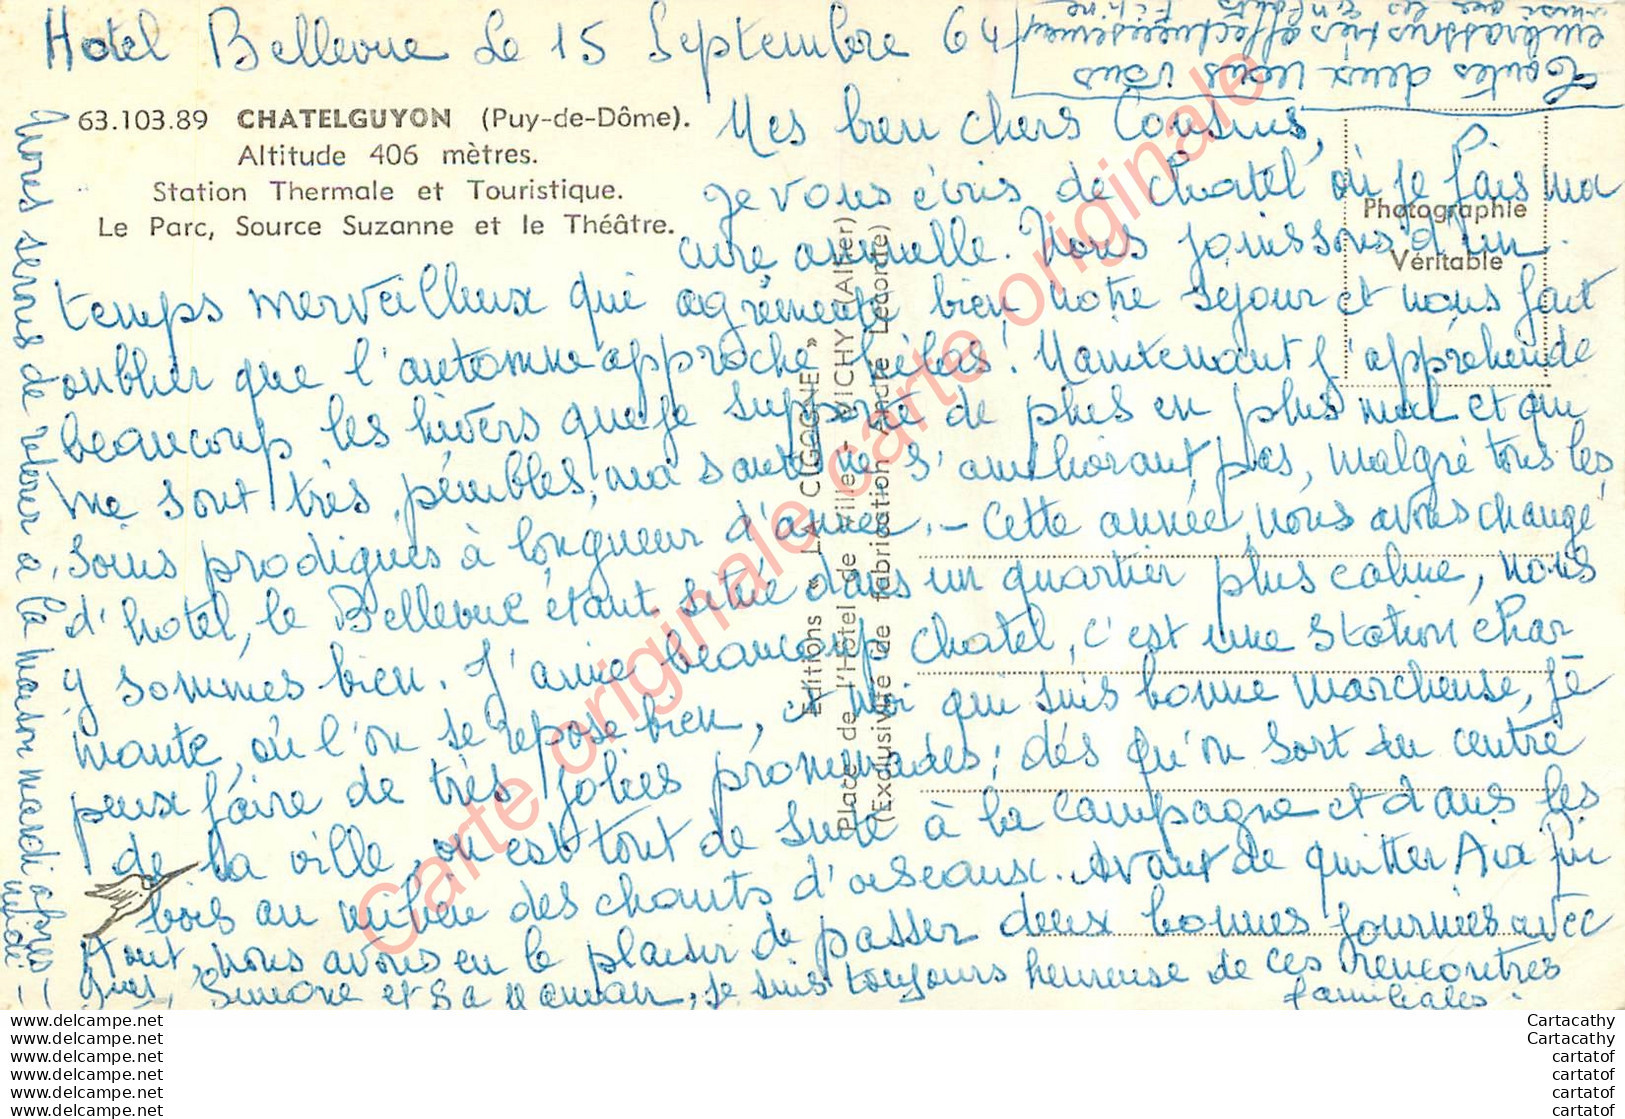 Hotel Bellevue Le 15 Septembre 64
63.103.89 CHATELGUYON (Puy-de-Dôme).
Altitude 406 mètres.
Station Thermale et Touristique.
Le Parc, Source Suzanne et le Théâtre.
Photographie
Véritable
Editions « LA CIGOGNE »
Place de l'Hôtel de Ville - VICHY (Allier)
(Exclusivité de fabrication André Leconte)
Mes bien chers Cousins,
Je vous écris de Chatel où je fais ma
cure annuelle. Nous jouissons d'un
temps merveilleux qui agrémente bien notre séjour et nous fait
oublier que l'automne approche hélas! Maintenant j'appréhende
beaucoup les hivers que je supporte de plus en plus mal et qui
me sont très pénibles, ma santé ne s'améliorant pas, malgré tous les
soins prodigués à longueur d'année. - Cette année, nous avons changé
d'hotel, le Bellevue étant située dans un quartier plus calme, nous
y sommes bien. J'aime beaucoup Chatel, c'est une station char-
mante, où l'on se repose bien, et moi qui suis bonne marcheuse, je
peux faire de très jolies promenades; dés qu'on sort du centre
de la ville, on est tout de suite à la campagne et dans les
bois au milieu des chants d'oiseaux. Avant de quitter Aix fin
Aout, nous avons eu le plaisir de passer deux bonnes journées avec
Simone et sa maman, je suis toujours heureuse de ces rencontres
familiales.
Nous serons de retour à la maison mardi après
midi!!
Toutes deux nous vous
embrassons très affectueusement
ainsi que les Enfants
Carte originale carte originale
www.delcampe.net
www.delcampe.net
www.delcampe.net
www.delcampe.net
www.delcampe.net
www.delcampe.net
Cartacathy
Cartacathy
cartatof
cartatof
cartatof
cartatof